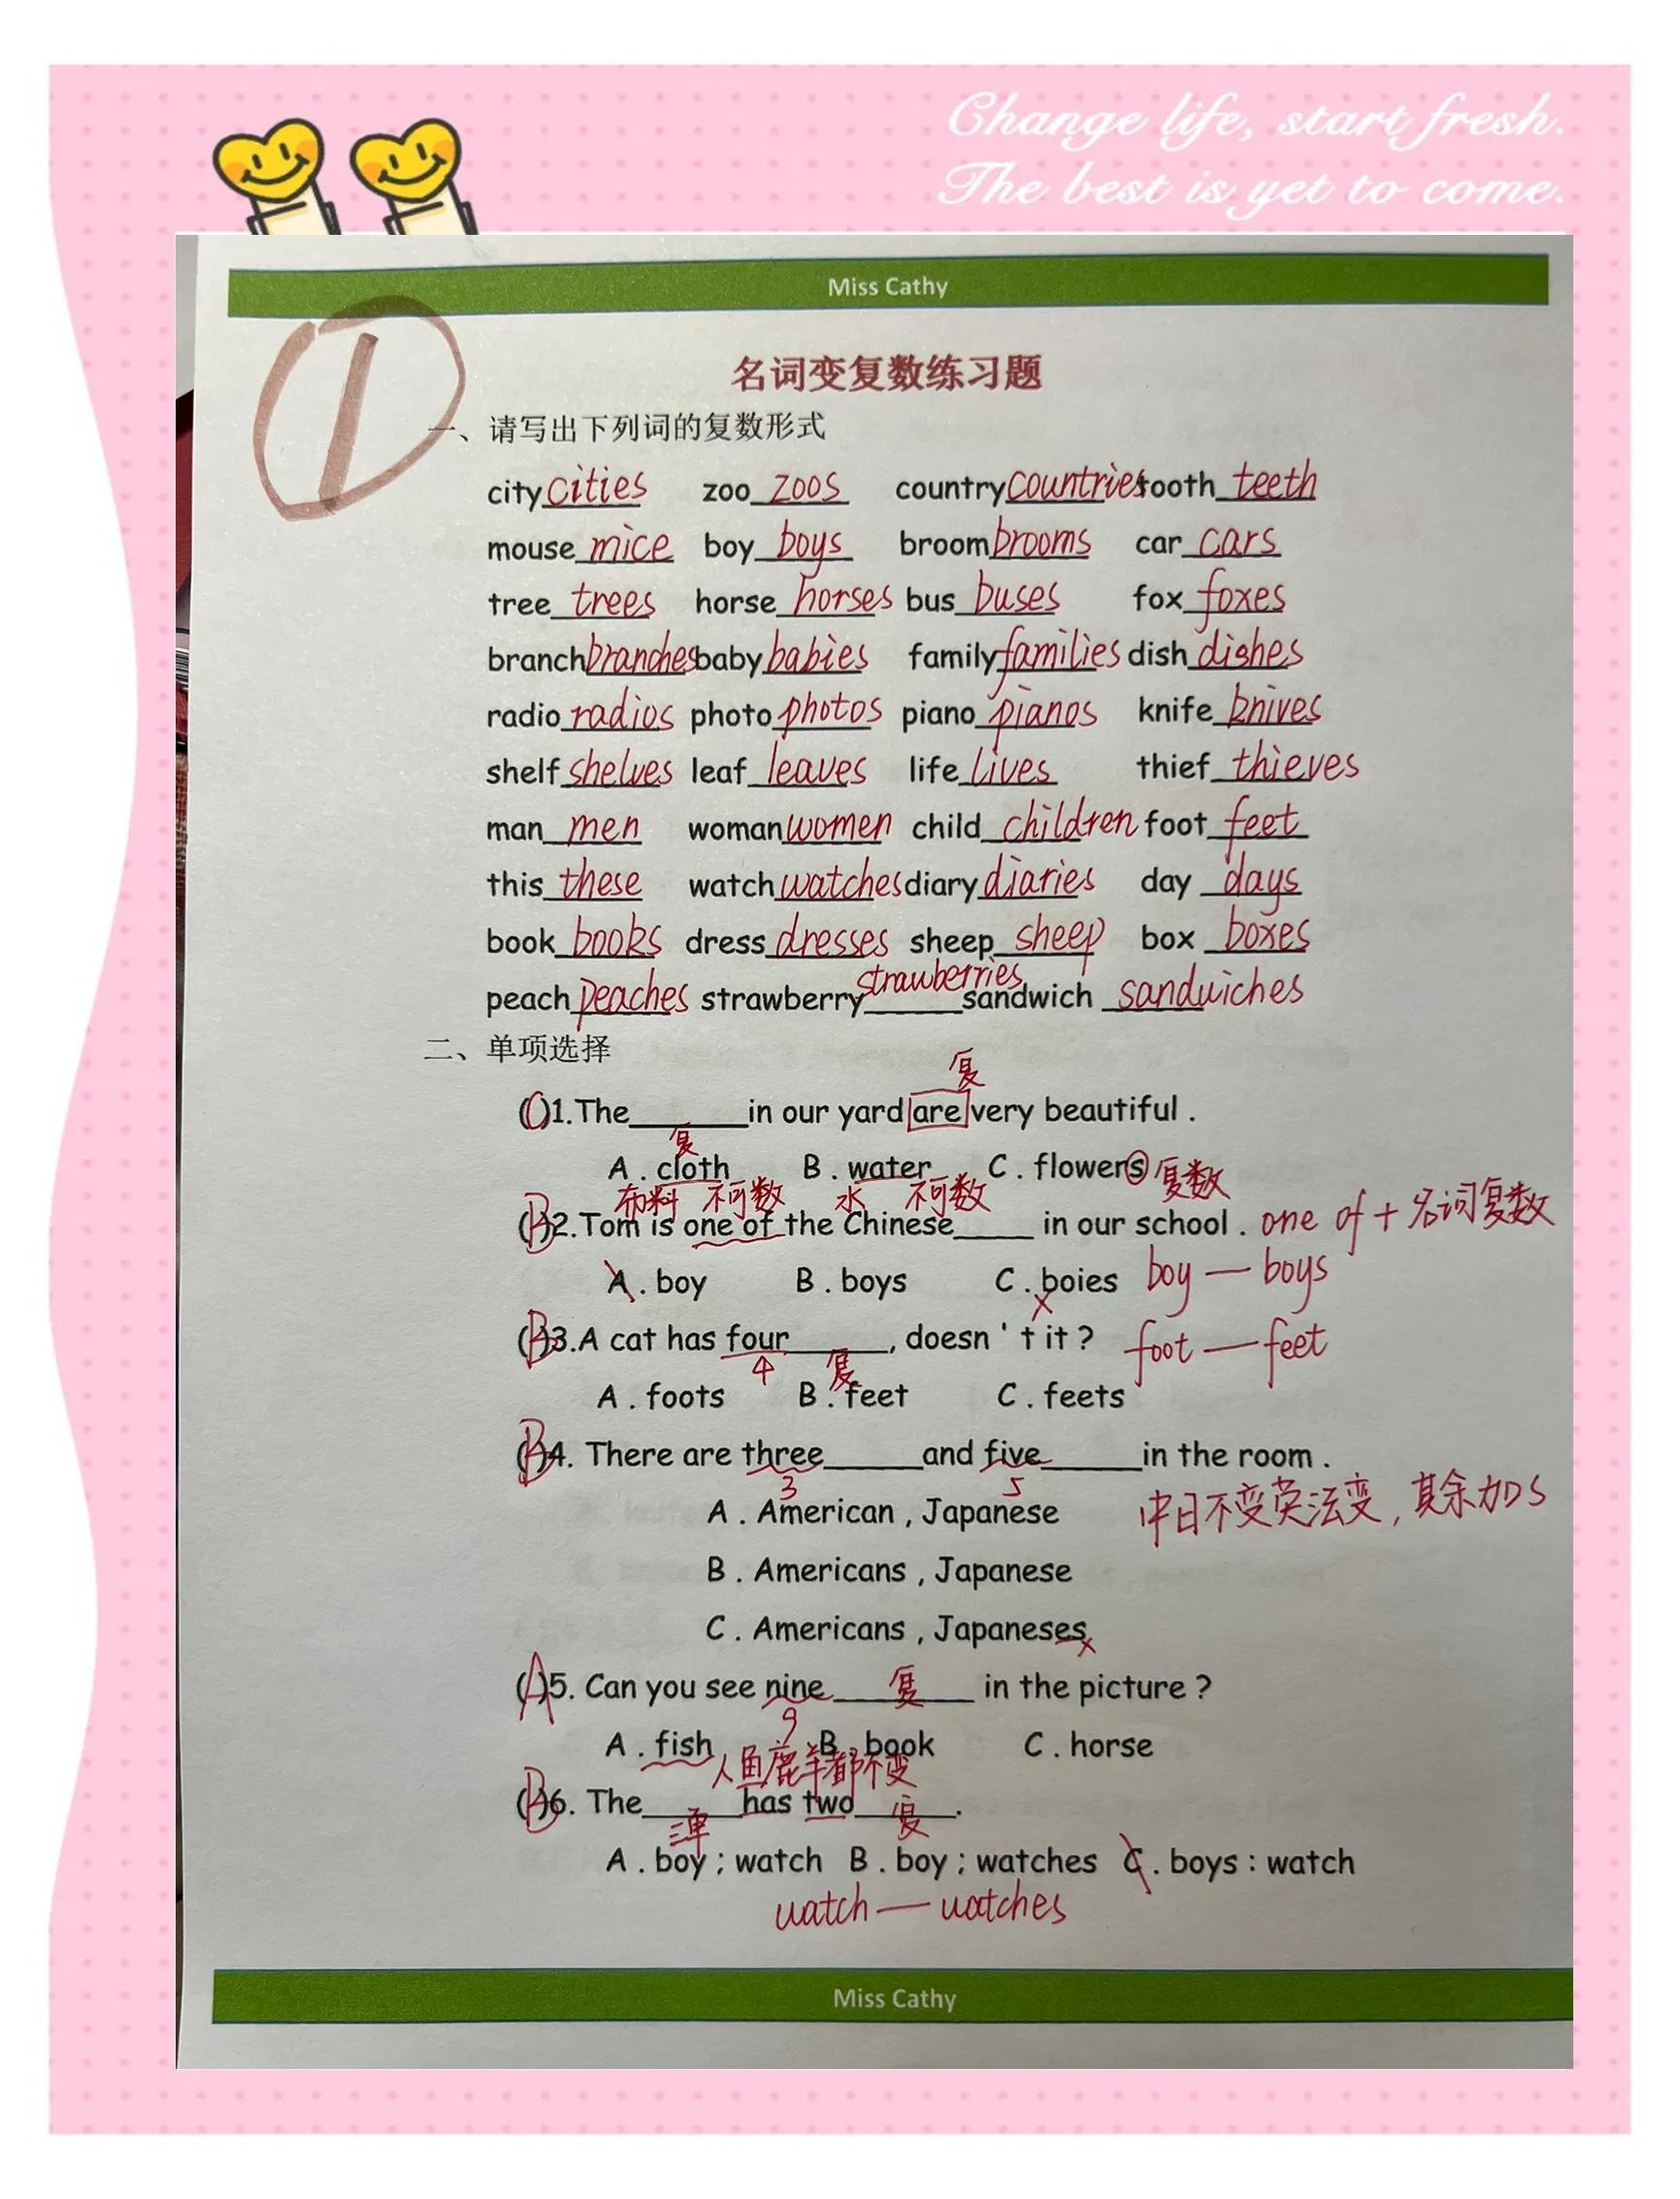 Change life, start fresh.
The best is yet to come.
Miss Cathy
1
名词变复数练习题
一、请写出下列词的复数形式
city cities zoo zoos country countries tooth teeth
mouse mice boy boys broom brooms car cars
tree trees horse horses bus buses fox foxes
branch branches baby babies family families dish dishes
radio radios photo photos piano pianos knife knives
shelf shelves leaf leaves life lives thief thieves
man men woman women child children foot feet
this these watch watches diary diaries day days
book books dress dresses sheep sheep box boxes
peach peaches strawberry strawberries sandwich sandwiches
二、单项选择
复
(C)1.The______in our yard are very beautiful .
复
A . cloth B . water C . flowers 复数
布料 不可数 水 不可数
(B)2.Tom is one of the Chinese____ in our school . one of + 名词复数
A . boy B . boys C . boies boy — boys
(B)3.A cat has four_____, doesn ' t it ? foot — feet
4 复
A . foots B . feet C . feets
(B)4. There are three_____and five_____in the room .
3 5
A . American , Japanese 中日不变英法变, 其余加s
B . Americans , Japanese
C . Americans , Japaneses
(A)5. Can you see nine 复 in the picture ?
9
A . fish B . book C . horse
人鱼鹿羊都不变
(B)6. The_____has two_____.
三单 复
A . boy ; watch B . boy ; watches C . boys : watch
watch — watches
Miss Cathy